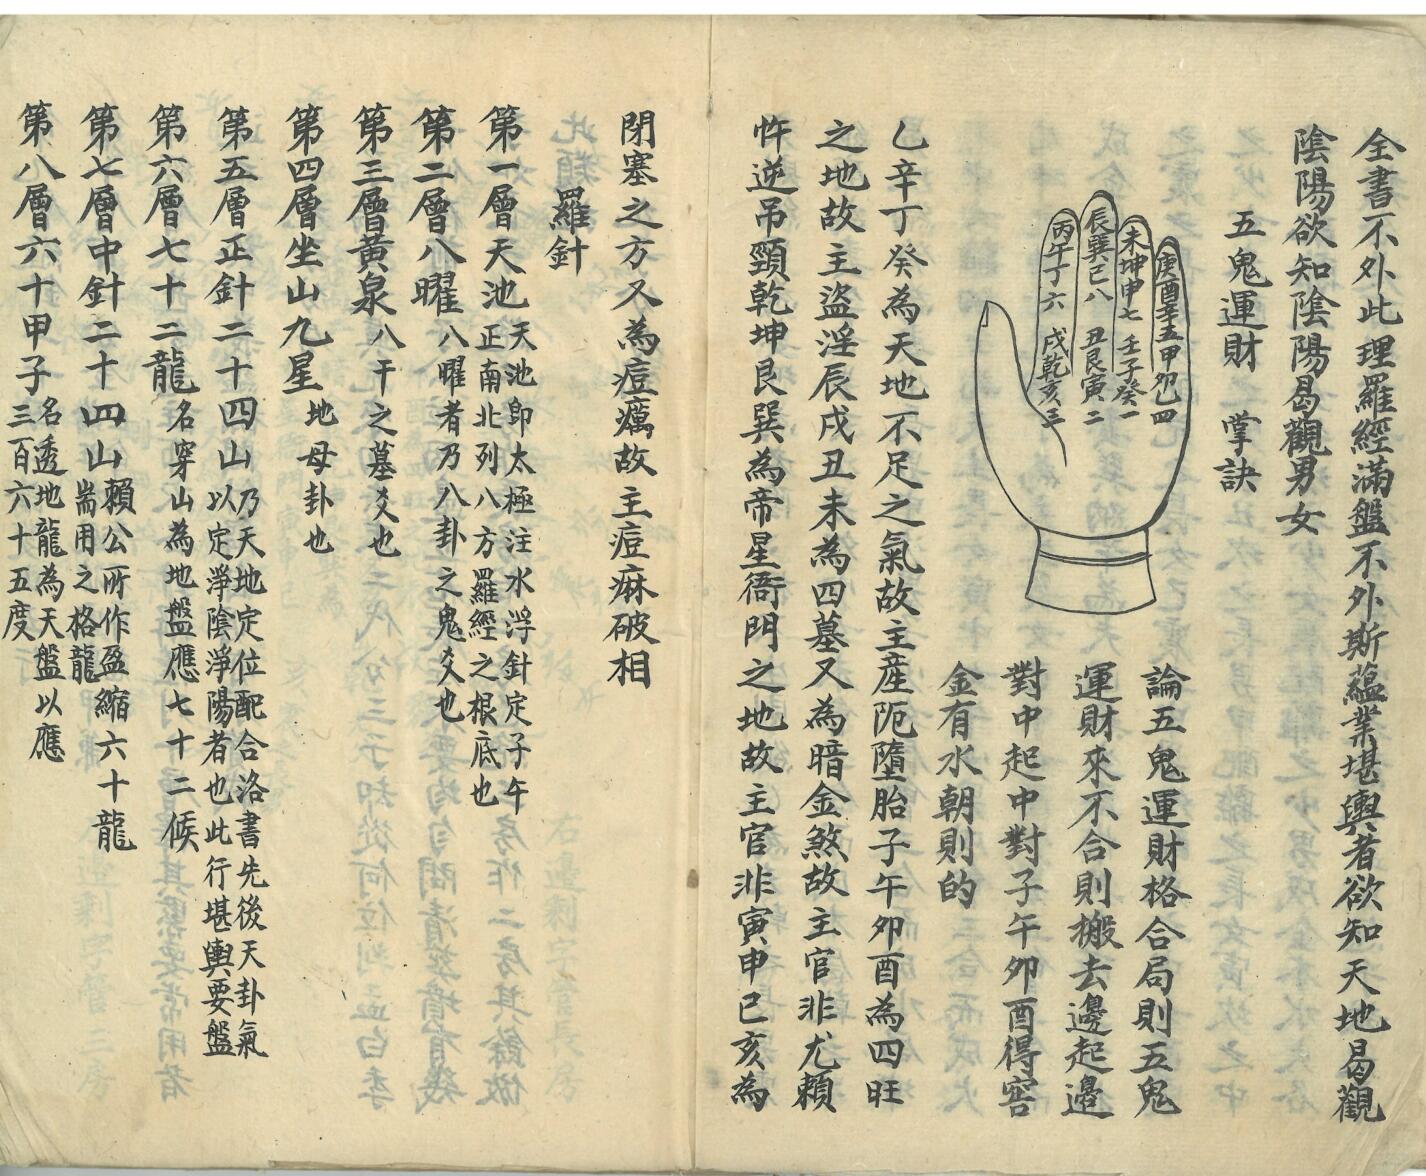 全書不外此理羅經滿盤不外斯蘊業堪輿者欲知天地曷觀
陰陽欲知陰陽曷觀男女
五鬼運財 掌訣
庚酉辛五
甲卯四
未坤申七
壬子癸一
辰巽巳八
丑艮寅二
丙午丁六
戌乾亥三
論五鬼運財格合局則五鬼
運財來不合則搬去邊起邊
對中起中對子午卯酉得窖
金有水朝則的
乙辛丁癸為天地不足之氣故主産阨墮胎子午卯酉為四旺
之地故主盜淫辰戌丑未為四墓又為暗金煞故主官非尤賴
忤逆吊頸乾坤艮巽為帝星衙門之地故主官非寅申巳亥為
閉塞之方又為痘癘故主痘痳破相
羅針
第一層天池 天池即太極注水浮針定子午
正南北列八方羅經之根底也
第二層八曜 八曜者乃八卦之鬼爻也
第三層黃泉 八干之墓爻也
第四層坐山九星 地母卦也
第五層正針二十四山 乃天地定位配合洛書先後天卦氣
以定淨陰淨陽者也此行堪輿要盤
第六層七十二龍 名穿山為地盤應七十二候
第七層中針二十四山 賴公所作盈縮六十龍
耑用之格龍
第八層六十甲子 名透地龍為天盤以應
三百六十五度